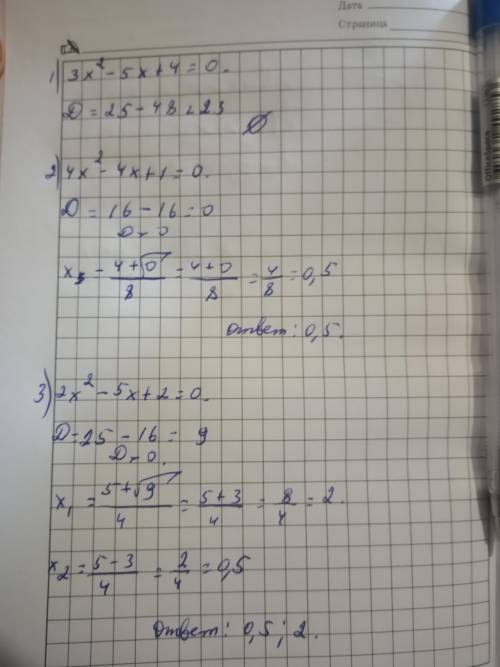 Дата
Страница
1) 3x² - 5x + 4 = 0.
D = 25 - 48 < 23
∅
2) 4x² - 4x + 1 = 0.
D = 16 - 16 = 0
D > 0
x = (4+√0)/8 = (4+0)/8 = 4/8 = 0,5
Ответ: 0,5.
3) 2x² - 5x + 2 = 0.
D = 25 - 16 = 9
D > 0.
x₁ = (5+√9)/4 = (5+3)/4 = 8/4 = 2.
x₂ = (5-3)/4 = 2/4 = 0,5
Ответ: 0,5; 2.